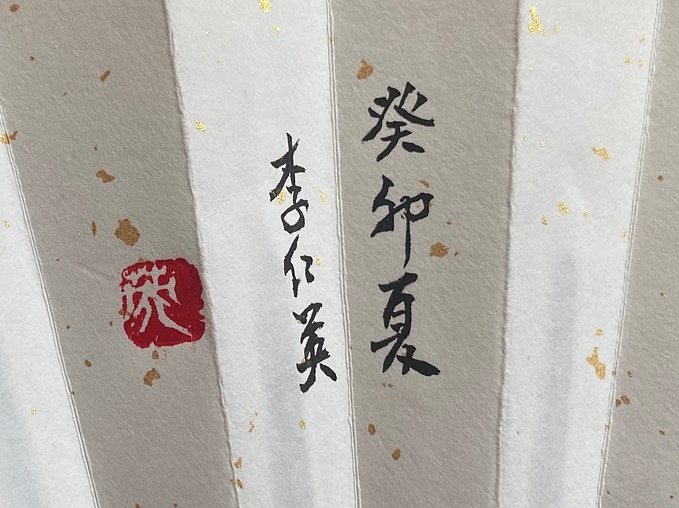 癸卯夏
李仁英
英